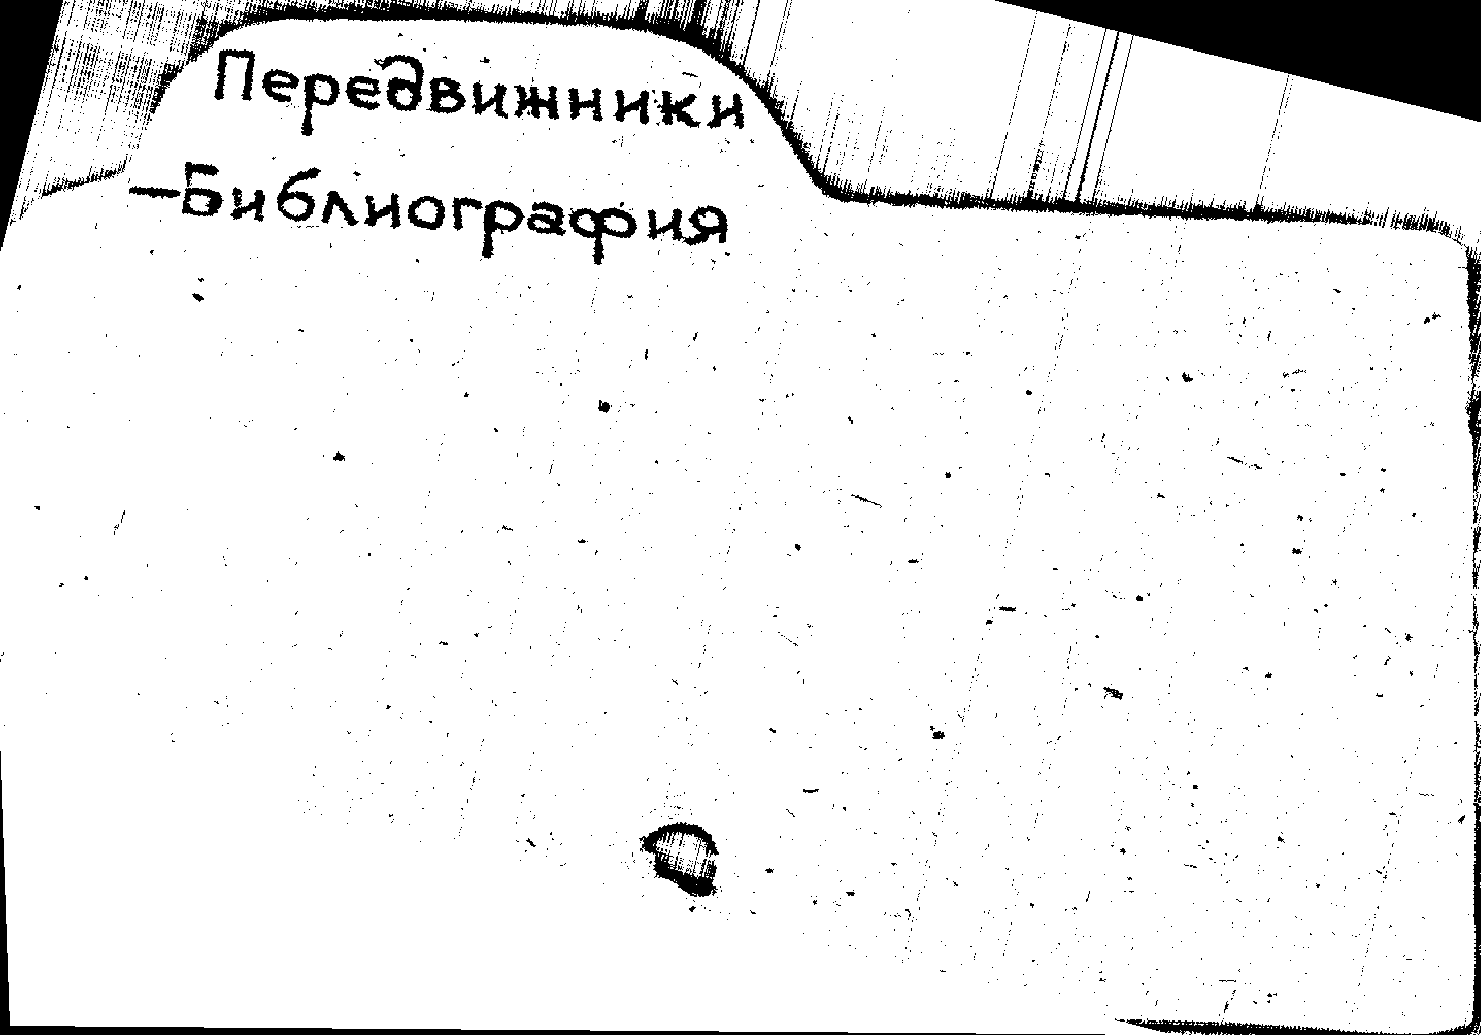 Передвижники
—Библиография